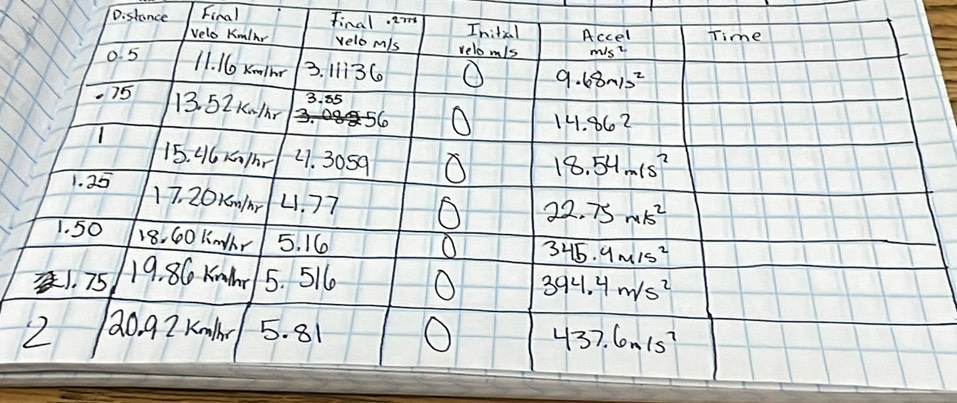 Distance Final Velo Km/hr Final .2778 Velo m/s Initial velo m/s Accel m/s² Time
0.5 11.16 Km/hr 3.11136 0 9.68m/s²
.75 13.52 Km/hr 3.85 56 0 14.862
1 15.46 Km/hr 4.3059 0 18.54 m/s²
1.25 17.20 Km/hr 4.77 0 22.75 m/s²
1.50 18.60 Km/hr 5.16 0 345.9 m/s²
1.75 19.86 Km/hr 5.516 0 394.4 m/s²
2 20.92 Km/hr 5.81 0 437.6 m/s²